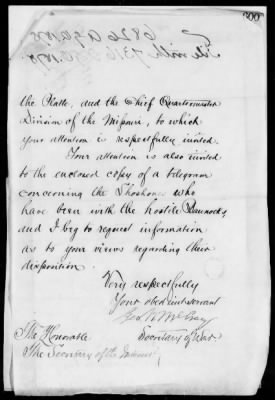 600
the Platte, and the Chief Quartermaster
Division of the Missouri, to which
your attention is respectfully invited.
Your attention is also invited
to the enclosed copy of a telegram
concerning the Shoshones who
have been with the hostile Bannocks,
and I beg to request information
as to your views regarding their
disposition.
Very respectfully
Your obedient servant
Geo. W. McCrary
Secretary of War
The Honorable
The Secretary of the Interior